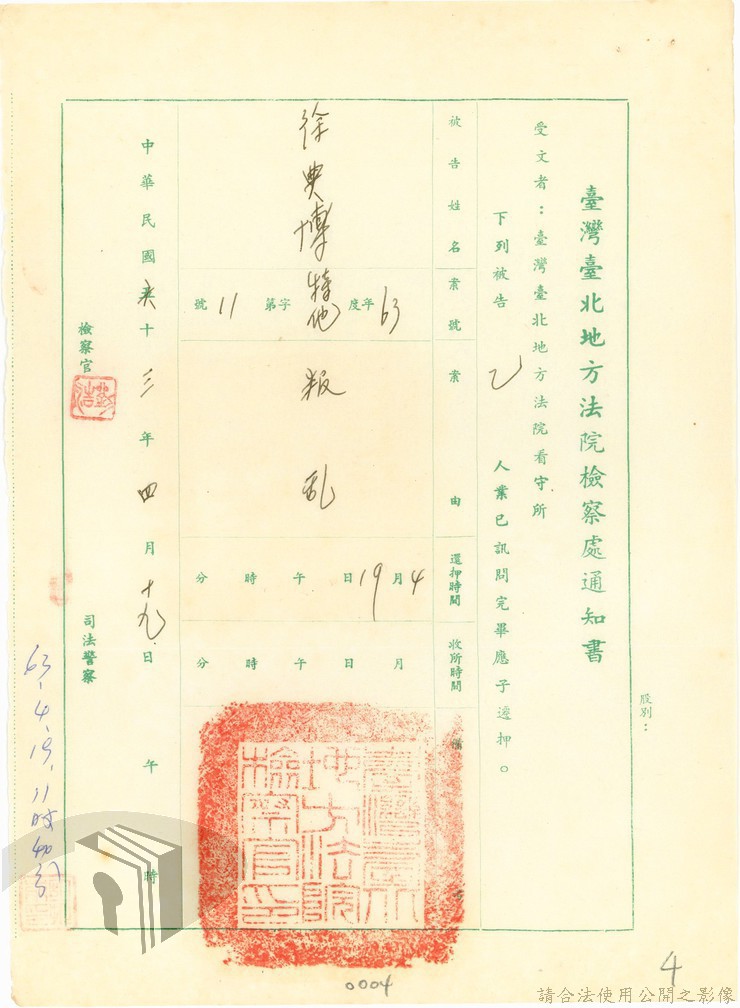 股別：
臺灣臺北地方法院檢察處通知書
受文者：臺灣臺北地方法院看守所
下列被告 乙 人業已訊問完畢應予還押。
被告姓名
案號
案由
還押時間
收所時間
備
徐典博
63年度特他字第11號
叛乱
4月19日午時分
月日午時分
臺灣臺北地方法院檢察官印
中華民國六十三年四月十九日午時
檢察官
司法警察
63.4.19.11時40分
0004
4
請合法使用公開之影像